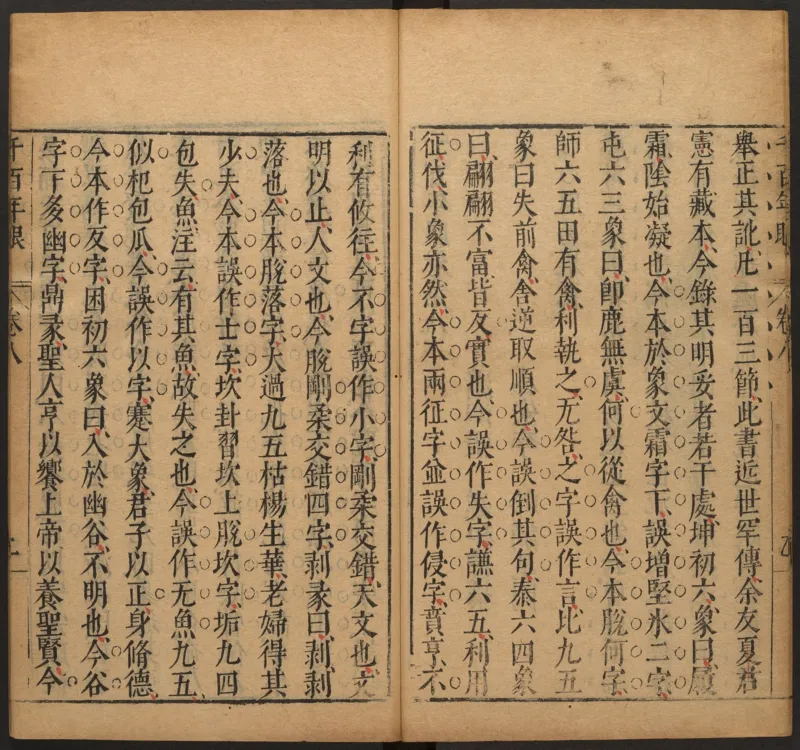 舉正其訛凡一百三節此書近世罕傳余友夏君
憲有藏本今錄其明妥者若干處坤初六象曰履
霜陰始凝也今本於象文霜字下誤增堅氷二字
屯六三象曰卽鹿無虞何以從禽也今本脫何字
師六五田有禽利執之无咎之字誤作言比九五
象曰失前禽舍逆取順也今誤倒其句泰六四象
曰翩翩不富皆反實也今誤作失字謙六五利用
征伐小象亦然今本兩征字並誤作侵字賁亨不
利有攸往今不字誤作小字剛柔交錯天文也文
明以止人文也今脫剛柔交錯四字剥彖曰剥剥
落也今本脫落字大過九五枯楊生華老婦得其
少夫今本誤作士字坎卦習坎上脫坎字垢九四
包失魚注云有其魚故失之也今誤作无魚九五
似杞包瓜今誤作以字蹇大象君子以正身脩德
今本作反字困初六象曰入於幽谷不明也今谷
字下多幽字鼎彖聖人亨以饗上帝以養聖賢今
千百年眼 卷八